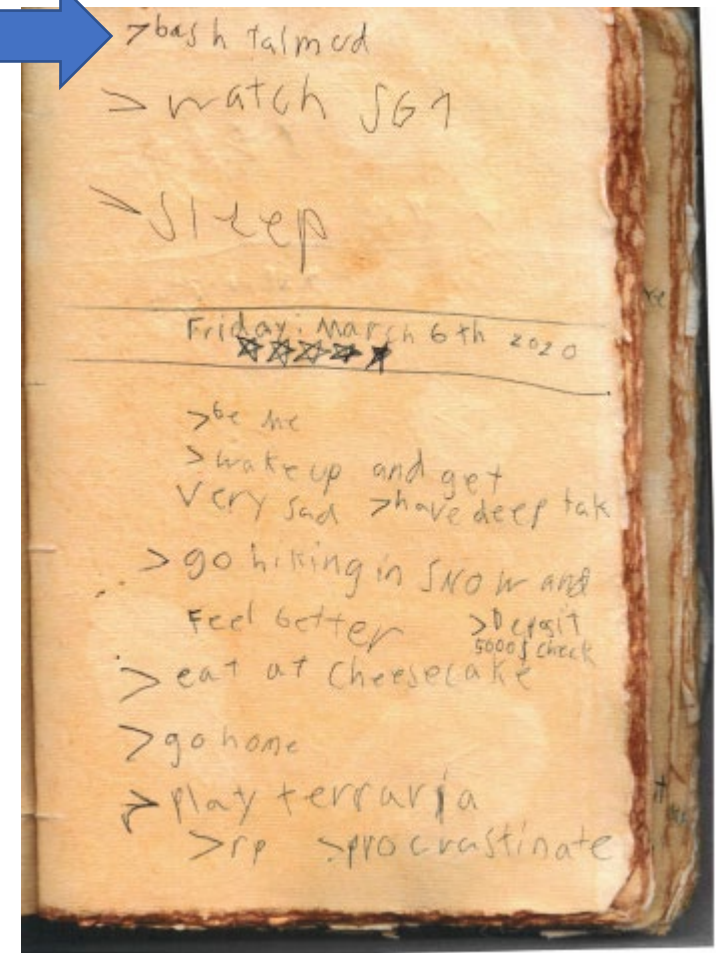 >bash talmud
>watch SG1
>sleep
Friday. March 6th 2020
>be me
>wake up and get
very sad >have deep tak
>go hiking in SNOW and
Feel better >Deposit
5000$ check
>eat at Cheesecake
>go home
>play terraria
>rp >procrastinate